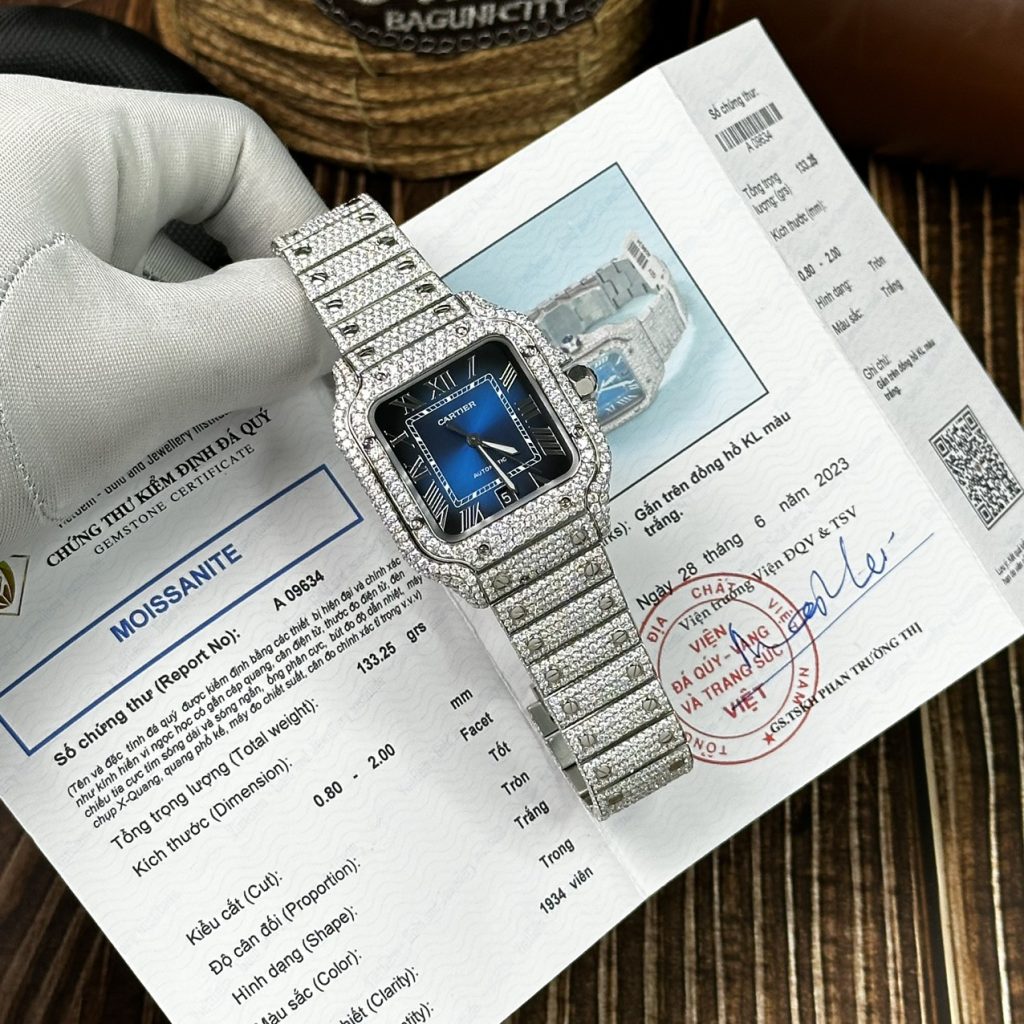 BAGUNI-CITY
Số chứng thư:
A 09634
Tổng trọng lượng (grs)
133.25
Kích thước (mm):
0.80 - 2.00
Hình dạng:
Tròn
Màu sắc:
Trắng
Ghi chú:
Gắn trên đồng hồ KL màu
trắng.
and Jewellery
CHỨNG THƯ KIỂM ĐỊNH ĐÁ QUÝ
GEMSTONE CERTIFICATE
MOISSANITE
Số chứng thư (Report No):
A 09634
(Tên và đặc tính đá quý được kiểm định bằng các thiết bị hiện đại và chính xác
như kính hiển vi ngọc học có gắn cáp quang, cân điện tử, thước đo điện tử, đèn
chiếu tia cực tím sóng dài và sóng ngắn, ống phân cực, bút đo độ dẫn nhiệt, máy
chụp X-Quang, quang phổ kế, máy đo chiết suất, cân đo chính xác tỉ trọng v.v.v)
Tổng trọng lượng (Total weight):
133.25 grs
Kích thước (Dimension):
0.80 - 2.00
mm
Kiểu cắt (Cut):
Facet
Độ cân đối (Proportion):
Tốt
Hình dạng (Shape):
Tròn
Màu sắc (Color):
Trắng
khiết (Clarity):
Trong
1934 viên
XII
CARTIER
AUTOMATIC
5
Gắn trên đồng hồ KL màu
trắng.
Ngày 28 tháng 6 năm 2023
Viện trưởng Viện ĐQV & TSV
ĐỊA CHẤT VIỆT NAM
TỔNG
VIỆN
ĐÁ QUÝ - VÀNG
VÀ TRANG SỨC
VIỆT
GS.TSKH PHAN TRƯỜNG THỊ